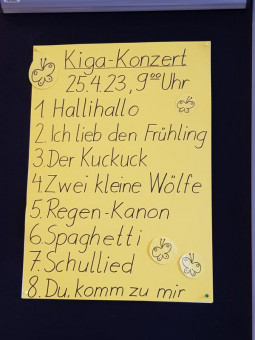 Kiga-Konzert
25.4.23, 9⁰⁰Uhr
1 Hallihallo
2. Ich lieb den Frühling
3. Der Kuckuck
4. Zwei kleine Wölfe
5. Regen-Kanon
6. Spaghetti
7. Schullied
8. Du, komm zu mir